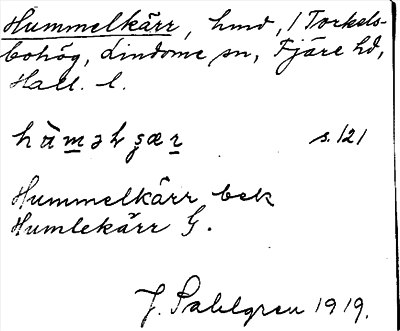 Hummelkärr, hmd, / Torkels-
bohög, Lindome sn, Fjäre hd,
Hall. l.
s. 121
Hummelkärr bek
Humlekärr G.
J. Sahlgren 1919.